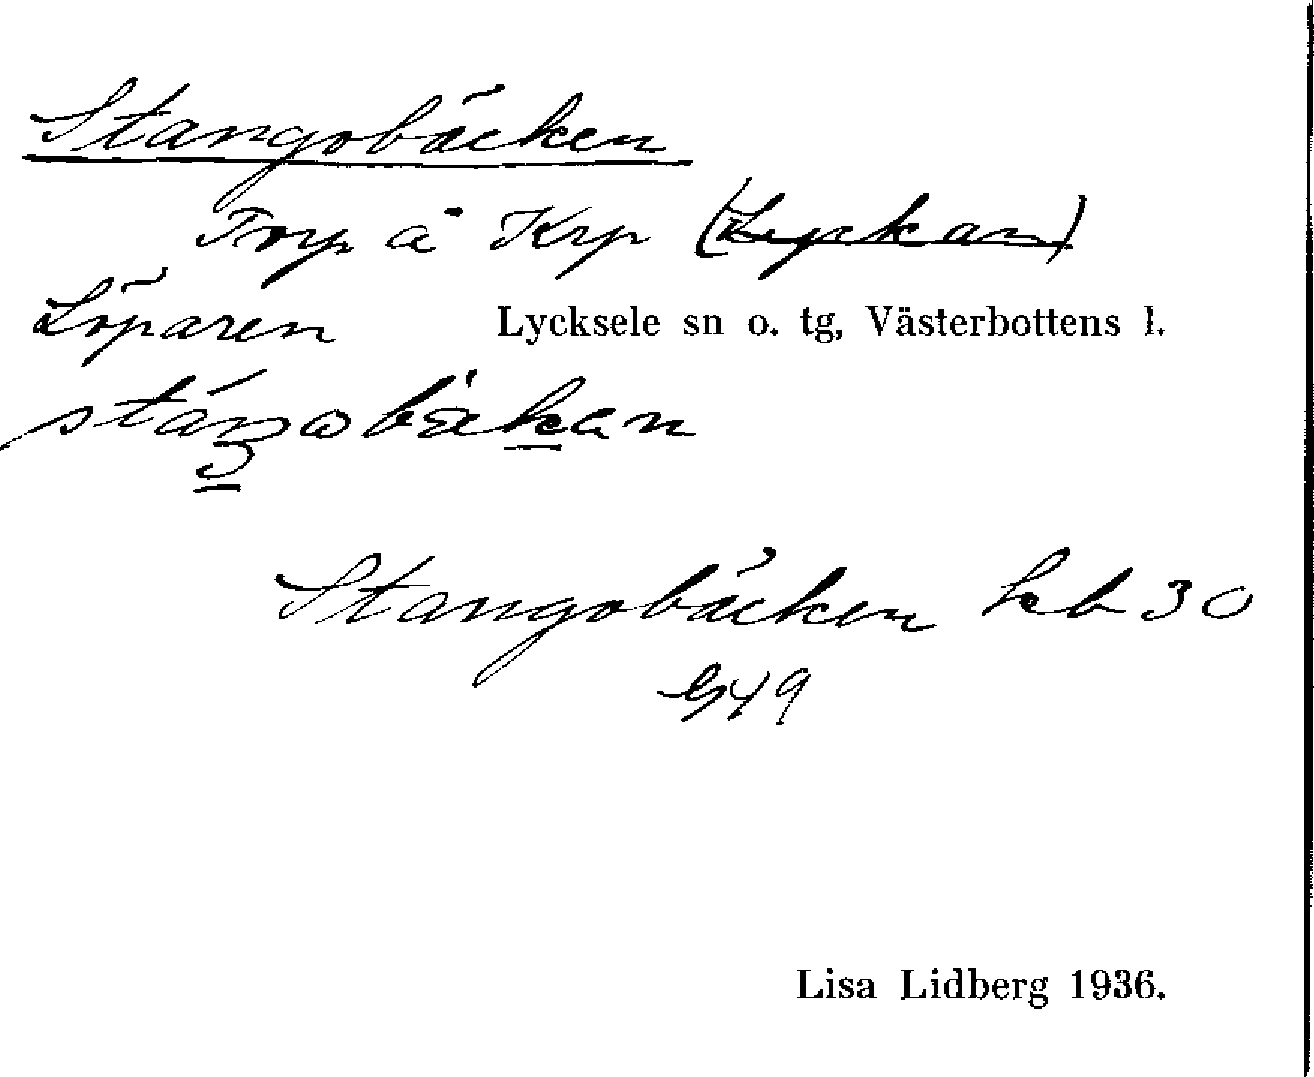 Stangobäcken
Torp å Krp (Lyckan)
Löparen Lycksele sn o. tg, Västerbottens l.
Stangobäcken kb 30
G49
Lisa Lidberg 1936.